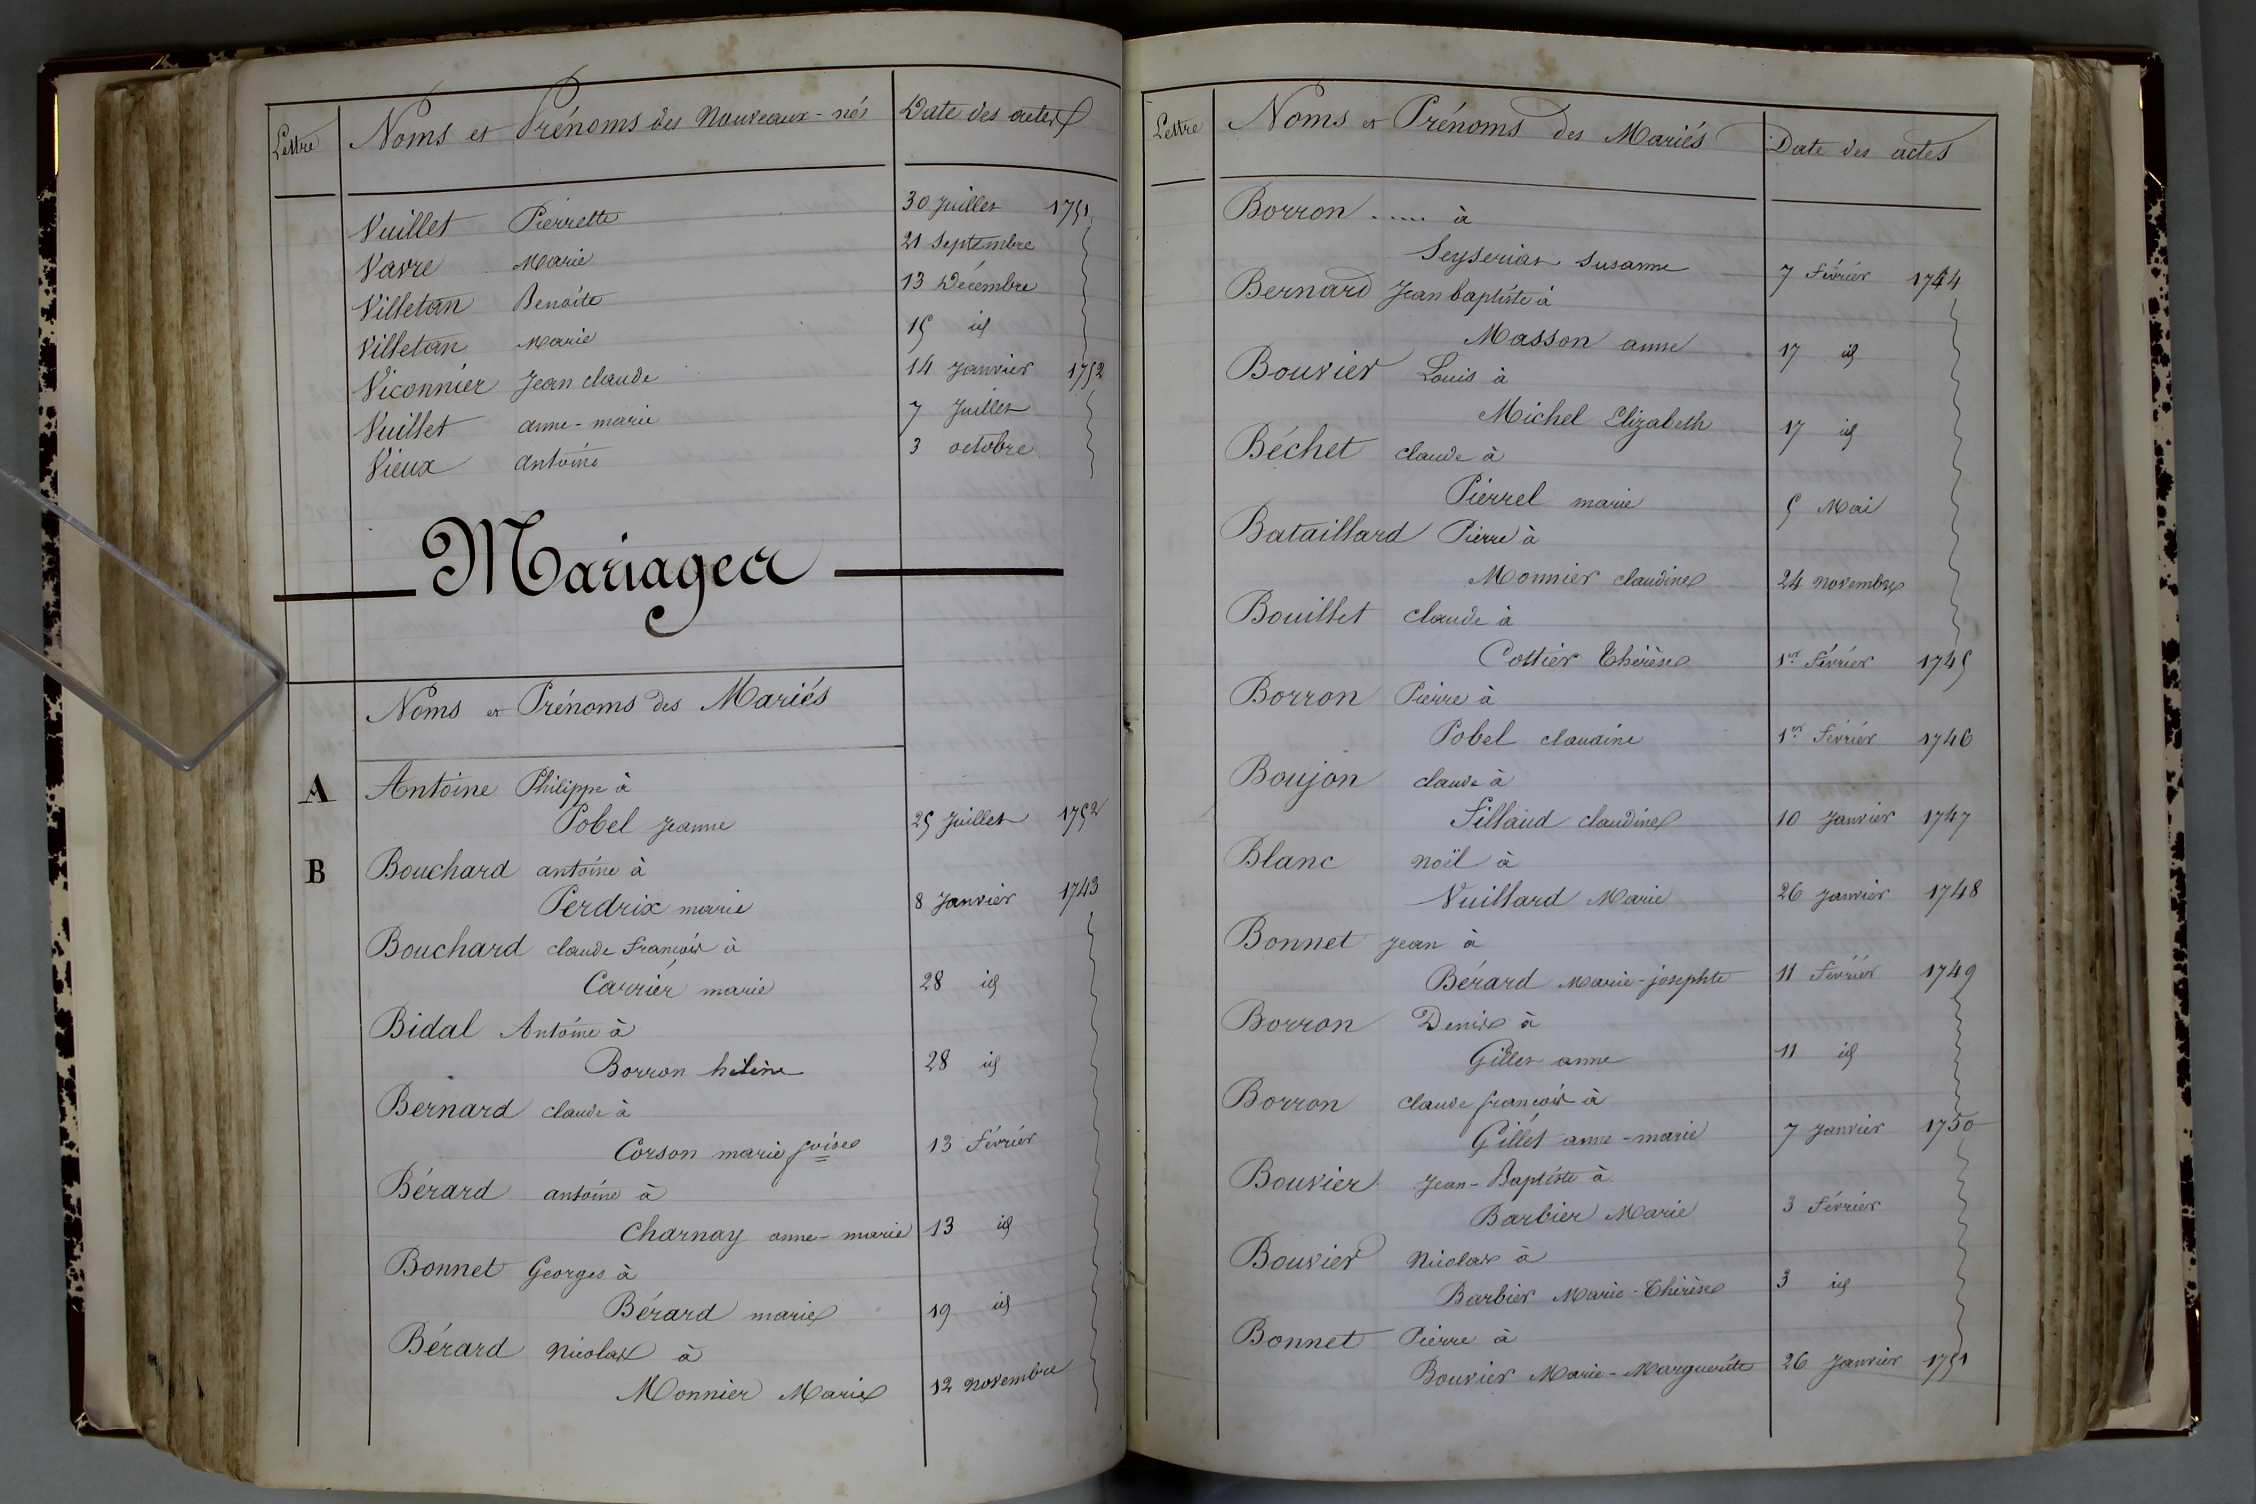 Lettre Noms et Prénoms des Nouveaux-nés Date des actes
Vuillet Pierrette 30 Juillet 1751
Vavre Marie 21 Septembre
Villetan Benoite 13 Décembre
Villetan Marie 15 id
Viconnier Jean claude 14 Janvier 1752
Vuillet anne-marie 7 Juillet
Vieux antoine 3 octobre
Mariages
Noms et Prénoms des Mariés
A Antoine Philippe à
Pobel Jeanne 25 Juillet 1752
B Bouchard antoine à
Perdrix marie 8 Janvier 1743
Bouchard claude François à
Carrier marie 28 id
Bidal Antoine à
Borron hélène 28 id
Bernard claude à
Corson marie foise 13 Février
Bérard antoine à
Charnay anne-marie 13 id
Bonnet Georges à
Bérard marie 19 id
Bérard Nicolas à
Monnier Marie 12 Novembre
Lettre Noms et Prénoms des Mariés Date des actes
Borron ..... à
Seyseriat Susanne 7 Février 1744
Bernard Jean baptiste à
Masson anne 17 id
Bouvier Louis à
Michel Elizabeth 17 id
Béchet claude à
Pierrel marie 5 Mai
Bataillard Pierre à
Monnier claudine 24 Novembre
Bouillet claude à
Cottier Thérèse 1er Février 1745
Borron Pierre à
Pobel claudine 1er Février 1746
Boujon claude à
Fillaud claudine 10 Janvier 1747
Blanc Noël à
Vuillard Marie 26 Janvier 1748
Bonnet Jean à
Bérard Marie-josephte 11 Février 1749
Borron Denis à
Gillet anne 11 id
Borron claude françois à
Gillet anne-marie 7 Janvier 1750
Bouvier Jean-Baptiste à
Barbier Marie 3 Février
Bouvier Nicolas à
Barbier Marie-Thérèse 3 id
Bonnet Pierre à
Bouvier Marie-Marguerite 26 Janvier 1751